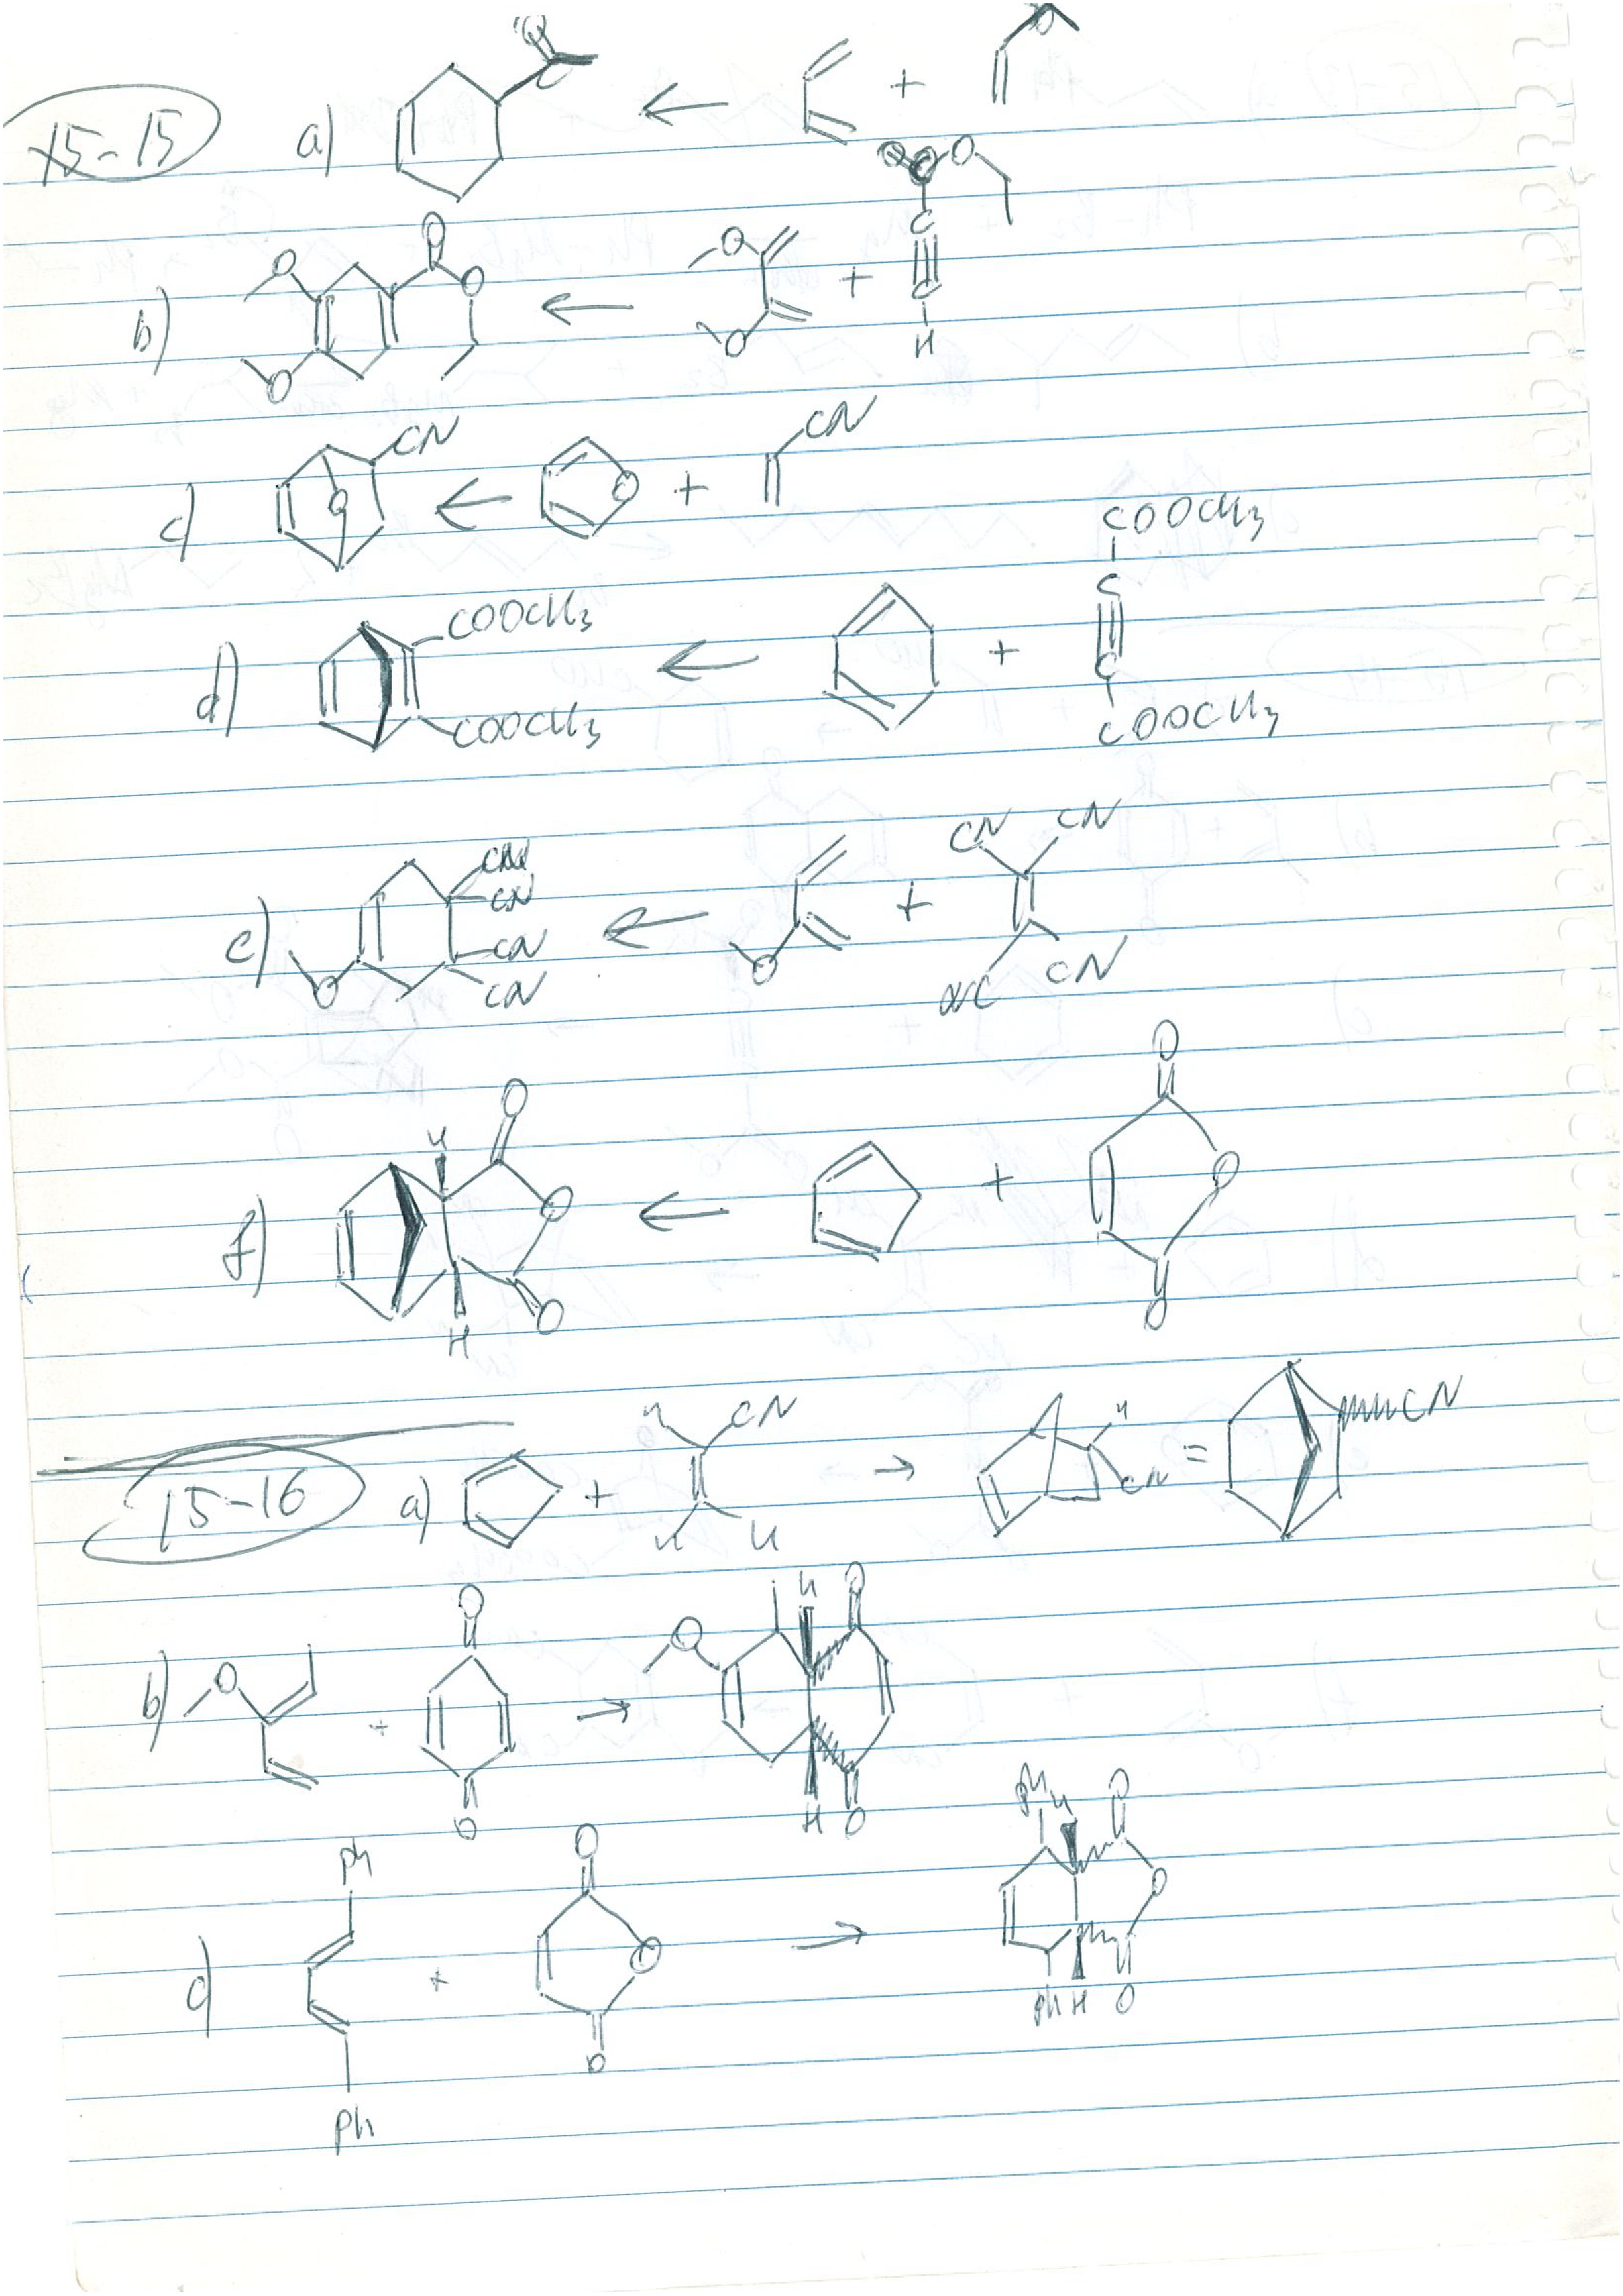 15-15
a) O ← +
b) O O O O ← O O + O O C C H
c) CN O ← O + CN
d) COOCH3 COOCH3 ← + COOCH3 C C COOCH3
e) CN CN CN CN O ← O + CN CN NC CN
f) H H O O O ← + O O O
15-16
a) + H CN H H → H CN = CN
b) O + O O → O H O H O
c) Ph Ph + O O O → Ph H O O Ph H O